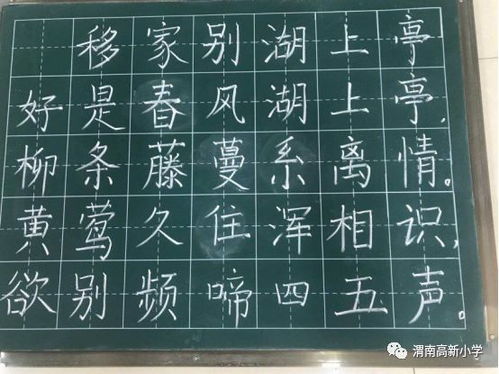 移家别湖上亭
好是春风湖上亭,
柳条藤蔓系离情。
黄莺久住浑相识,
欲别频啼四五声。
渭南高新小学